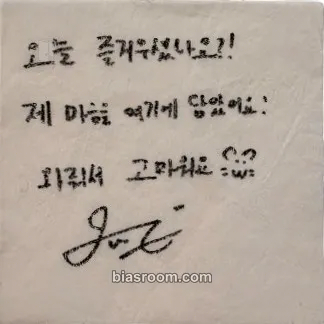 오늘 즐거우셨나요?!
제 마음을 여기에 담았어요!
와줘서 고마워요
biasroom.com